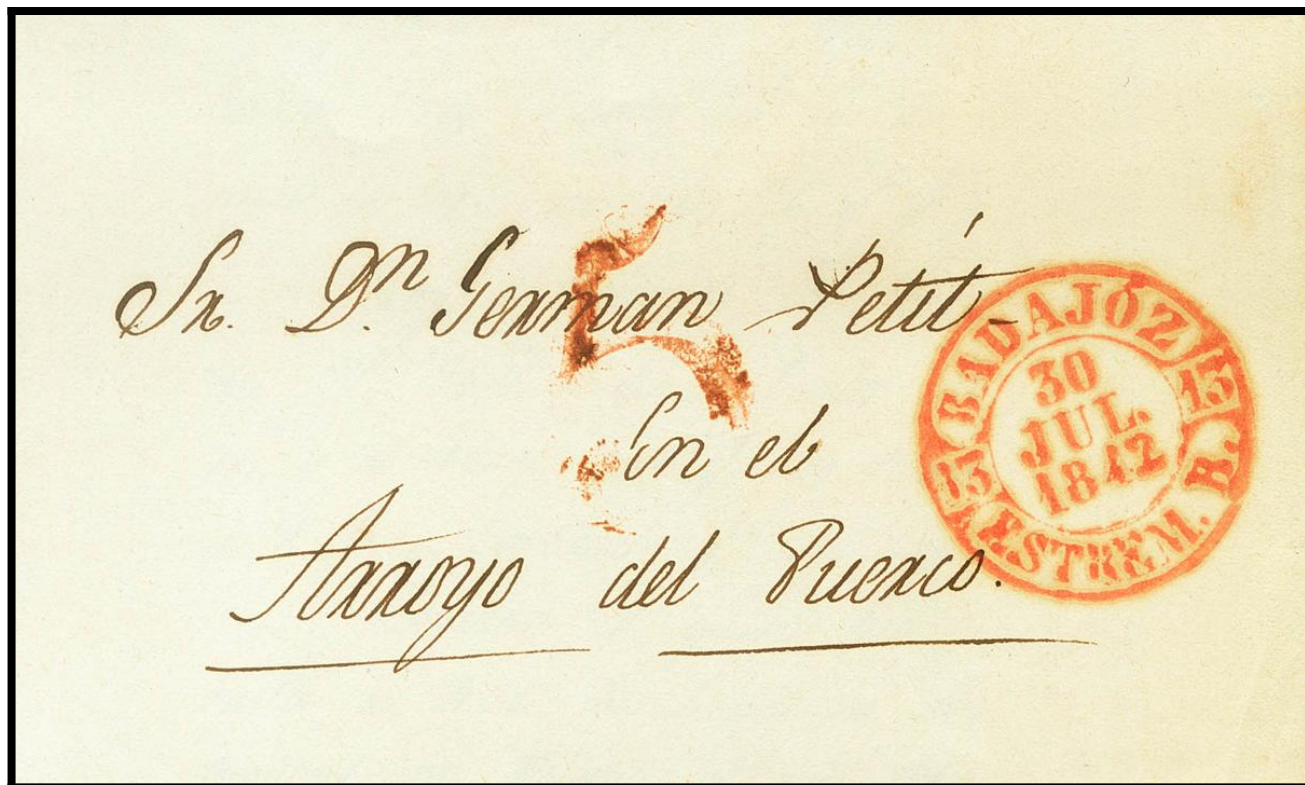 Sr. Dn. German Petit
En el
Arroyo del Puerco.
5
BADAJÓZ
13 13
30
JUL.
1842
ESTREM. B.